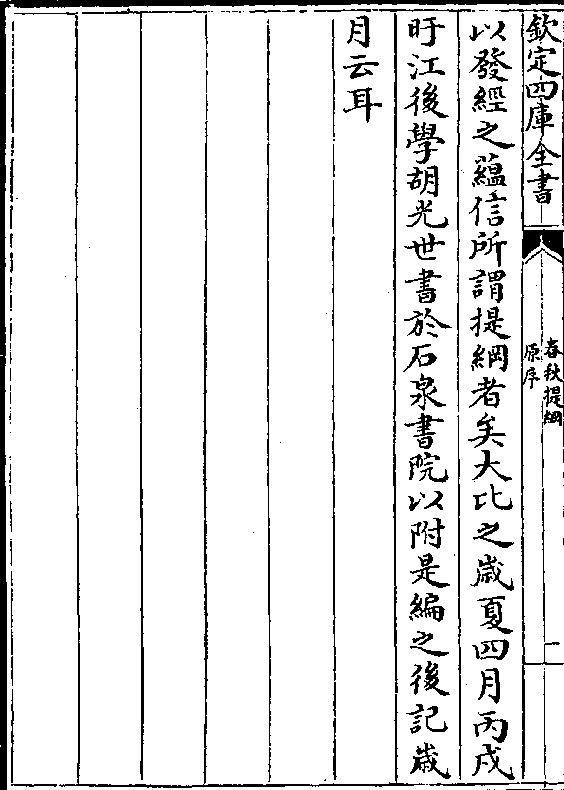 欽定四庫全書
春秋提綱
原序
二
以發經之蘊信所謂提綱者矣大比之歲夏四月丙戌
盱江後學胡光世書於石泉書院以附是編之後記歲
月云耳